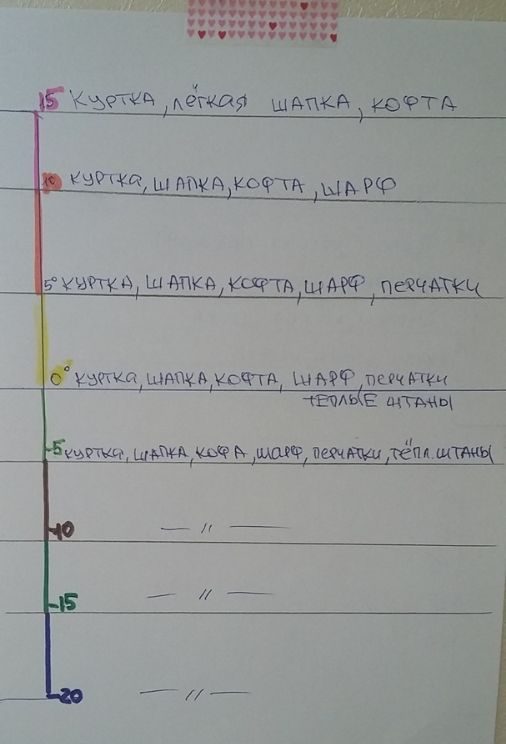 15 КУРТКА, ЛЁГКАЯ ШАПКА, КОФТА
10 КУРТКА, ШАПКА, КОФТА, ШАРФ
5° КУРТКА, ШАПКА, КОФТА, ШАРФ, ПЕРЧАТКИ
0° КУРТКА, ШАПКА, КОФТА, ШАРФ, ПЕРЧАТКИ
ТЕПЛЫЕ ШТАНЫ
-5 КУРТКА, ШАПКА, КОФА, ШАРФ, ПЕРЧАТКИ, ТЁПЛ. ШТАНЫ
-10 — // —
-15 — // —
-20 — // —